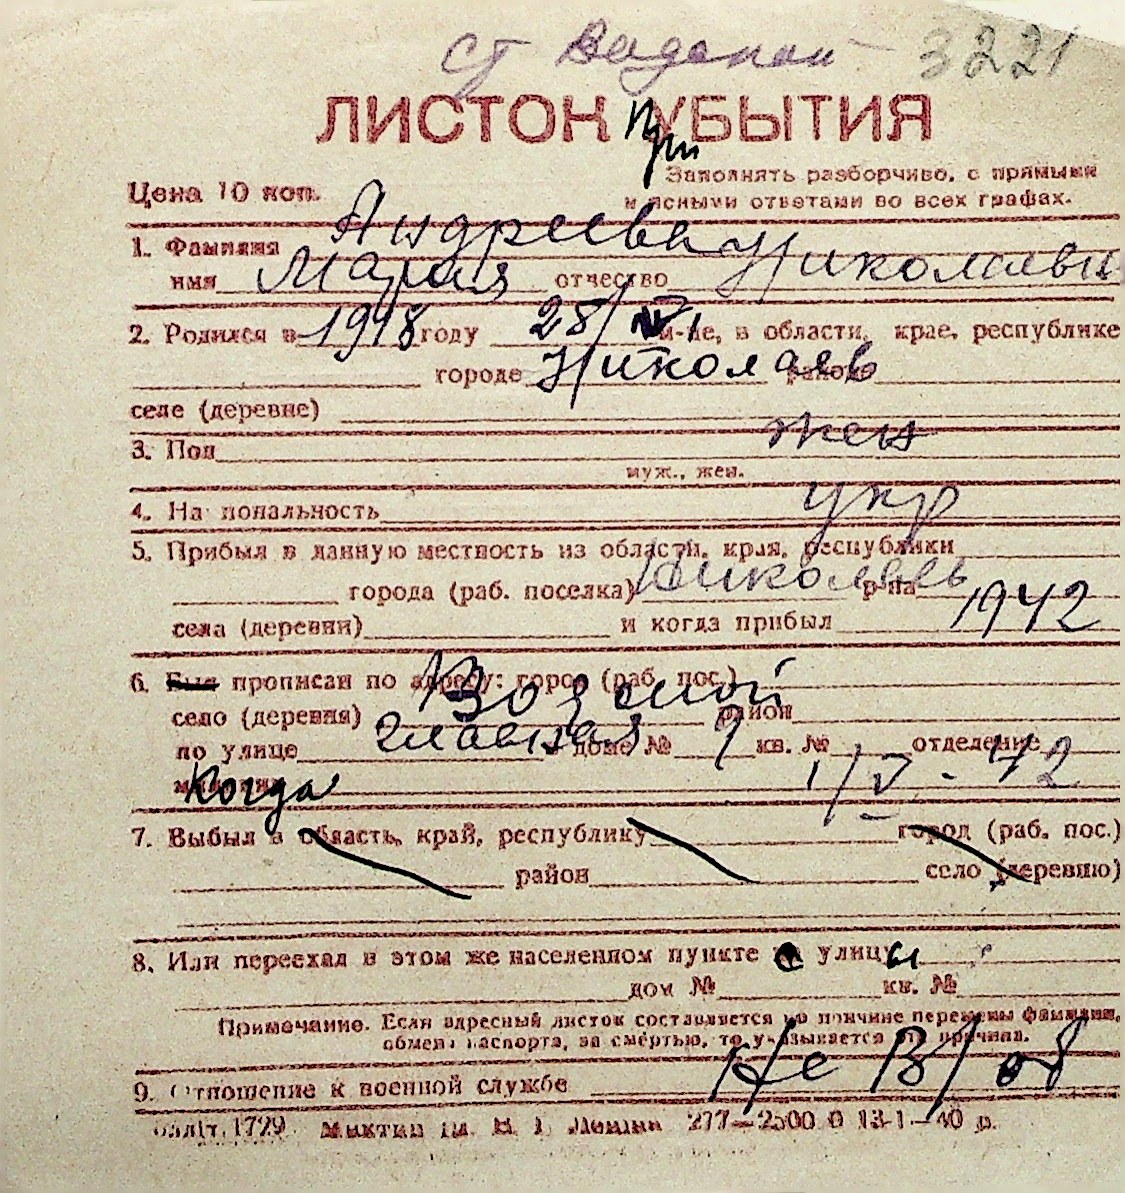 ст Водопой 3221
ЛИСТОК При УБЫТИЯ
Заполнять разборчиво, с прямыми
Цена 10 коп.
и ясными ответами во всех графах.
1. Фамилия Андреева
имя Мария отчество Николаевн
2. Родился в 1918 году 28/ м-це, в области, крае, республике
городе Николаев районе
селе (деревне)
3. Пол жен
муж., жен.
4. Национальность укр
5. Прибыл в данную местность из области, края, республики
города (раб. поселка) Николаевь р-на
села (деревни) и когда прибыл 1942
6. Был прописан по адресу: город (раб. пос.)
село (деревня) район
по улице Главная доме № 9 кв. № отделение
Когда 1/V - 42
7. Выбыл в область, край, республику город (раб. пос.)
район село (деревню)
8. Или переехал в этом же населенном пункте с улицы
дом № кв. №
Примечание. Если адресный листок составляется по причине перемены фамилии,
обмена паспорта, за смертью, то указывается эта причина.
9. Отношение к военной службе Не В/об
1729 277—2500 0 13-1—40 р.